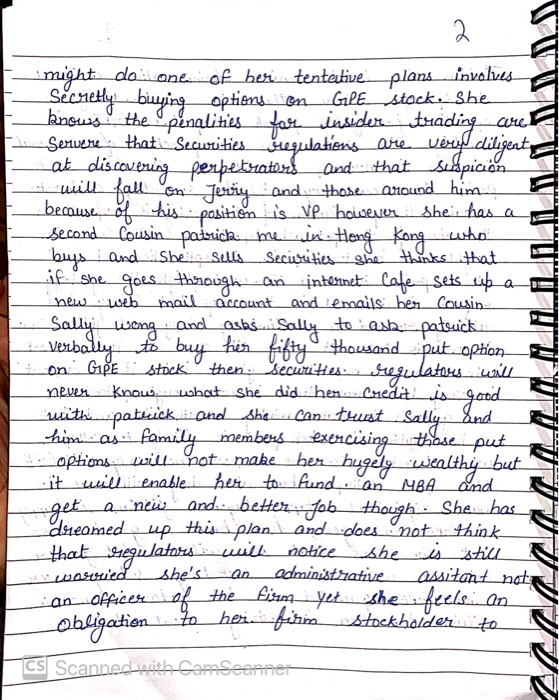 2
might do one of her tentative plans involves
Secretly buying options on GPE stock. She
knows the penalities for insider trading are
Servere that Securities regulations are very diligent
at discovering perpetrators and that suspicion
will fall on Jerry and those around him
because of his position is VP however she has a
second Cousin patrick me in Hong Kong who
buys and she sells Securities she thinks that
if she goes through an internet Cafe sets up a
new web mail account and emails her Cousin
Sally wong and asks Sally to ask patrick
verbally to buy her fifty thousand put option
on GPE stock then securities regulators will
never know what she did her credit is good
with patrick and she can trust Sally and
him as family members exercising those put
options will not make her hugely wealthy but
it will enable her to fund an MBA and
get a new and better Job though. She has
dreomed up this plan and does not think
that regulators will notice she is still
worried she's an administrative assitant not
an officer of the firm yet she feels an
obligation to her firm stockholder to
CS Scanned with CamScanner